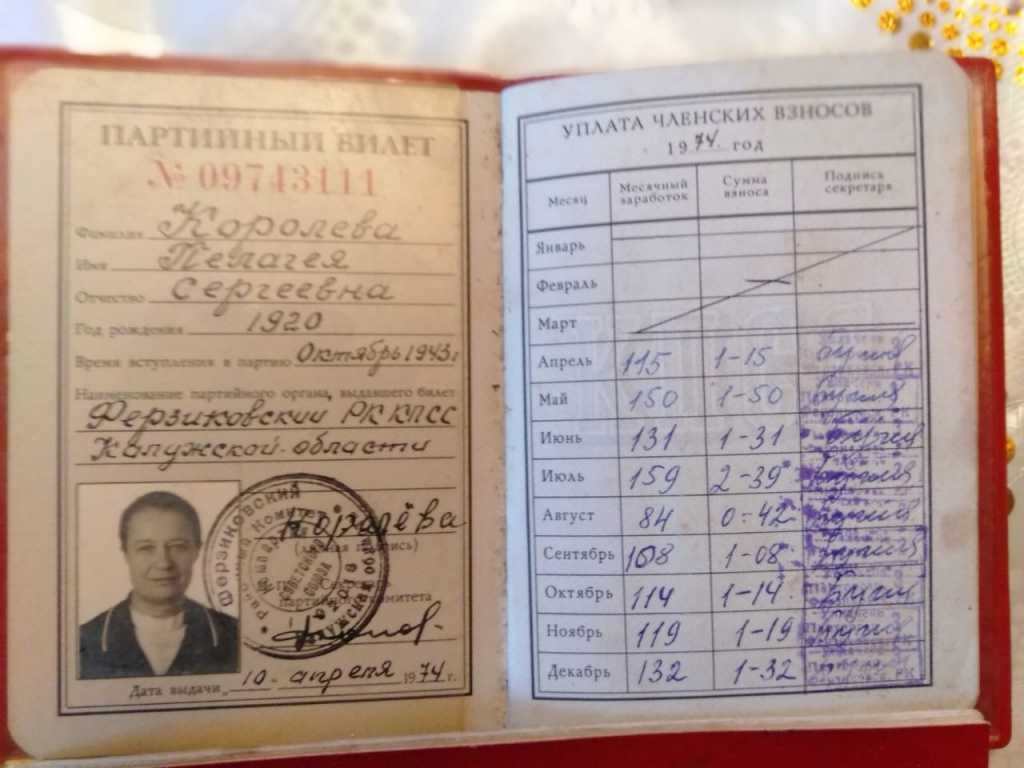 ПАРТИЙНЫЙ БИЛЕТ
№ 09743111
Фамилия Королева
Имя Пелагея
Отчество Сергеевна
Год рождения 1920
Время вступления в партию Октябрь 1943 г
Наименование партийного органа, выдавшего билет
Ферзиковский РК КПСС
Калужской области
Королёва
(личная подпись)
партийного комитета
Дата выдачи „10" апреля 1974 г.
УПЛАТА ЧЛЕНСКИХ ВЗНОСОВ
1974. год
Месяц Месячный заработок Сумма взноса Подпись секретаря
Январь
Февраль
Март
Апрель 115 1-15
Май 150 1-50
Июнь 131 1-31
Июль 159 2-39
Август 84 0-42
Сентябрь 108 1-08
Октябрь 114 1-14
Ноябрь 119 1-19
Декабрь 132 1-32